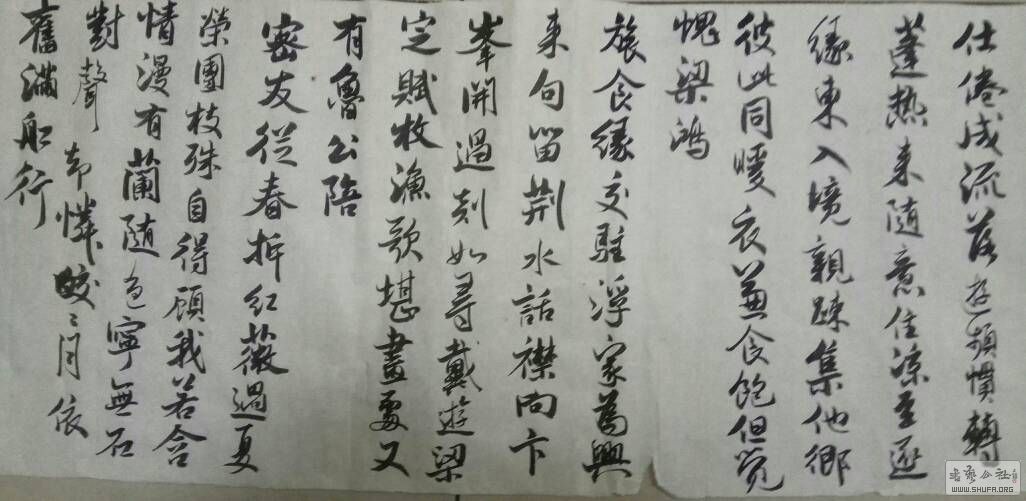 仕倦成流落遊頻慣轉
蓬热来随意住涼至逐
緣東入境親疎集他鄉
彼此同暖衣兼食飽但覺
愧梁鴻
旅食緣交駐浮家爲興
来句留荆水話襟向卞
峯開過剡如尋戴遊梁
定賦枚漁歌堪畫處又
有魯公陪
密友從春拆紅薇過夏
榮團枝殊自得顧我若含
情漫有蘭随色寧無石
對聲却憐皎々月依
舊滿船行
WWW.SHUFA.ORG